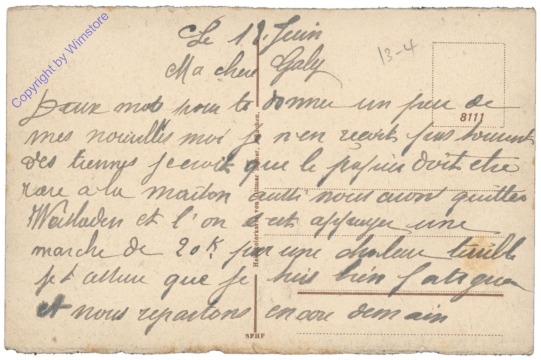 Le 12 Juin
13-4
Ma chere Gaby
Deux mots pour te donner un peu de
mes nouvelles moi je n'en reçoit pas souvent
des tiennes je croit que le papier doit etre
rare a la maison aussi nous avons quitter
Wiesbaden et l'on s'est appuyer une
marche de 20 K par une chaleur terrible
je t'assure que je suis bien fatiguer
et nous repartons encore demain
8111
SPHF
Copyright by Wimstore